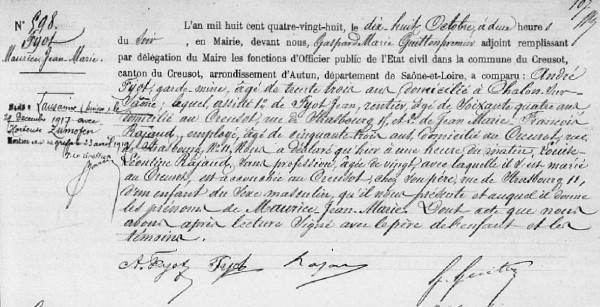 N° 898.
Fyot
Maurice, Jean-Marie.
L'an mil huit cent quatre-vingt-huit, le dix huit Octobre, à deux heures
du soir, en Mairie, devant nous, Gaspard Marie adjoint remplissant
par délégation du Maire les fonctions d'Officier public de l'Etat civil dans la commune du Creusot,
canton du Creusot, arrondissement d'Autun, département de Saône-et-Loire, a comparu : André
Fyot, garde mine, âgé de trente trois ans domicilié à Chalon-sur-
Saône, lequel, assisté 1° de Fyot Jean, rentier, âgé de soixante quatre ans
domicilié au Creusot, rue de Strasbourg 11, et 2° de Jean Marie François
Rajaud, employé, âgé de cinquante trois ans, domicilié au Creusot, rue
de Strasbourg, N° 11, Nous a déclaré qu'hier à une heure du matin, Louise
Léontine Rajaud, sans profession, âgée de vingt, avec laquelle il s'est marié
au Creusot, est accouchée au Creusot, chez son père, rue de Strasbourg 11,
d'un enfant du sexe masculin, qu'il nous présente et auquel il donne
les prénoms de Maurice Jean-Marie. Dont acte que nous
avons après lecture signé avec le père de l'enfant et les
témoins.
Marié à Lausanne (Suisse) le
29 Decembre 1917 avec
Hortense Zumofen
23 avril 1919
A. Fyot Fyot Rajau